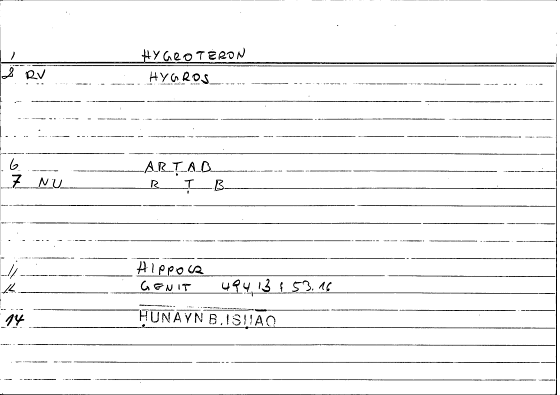 1 HYGROTERON
8 RV HYGROS
6 ARṬAB
7 NU R Ṭ B
11 HIPPOCR
12 GENIT 494,13 : 53.16
14 ḤUNAYN B.ISḤAQ